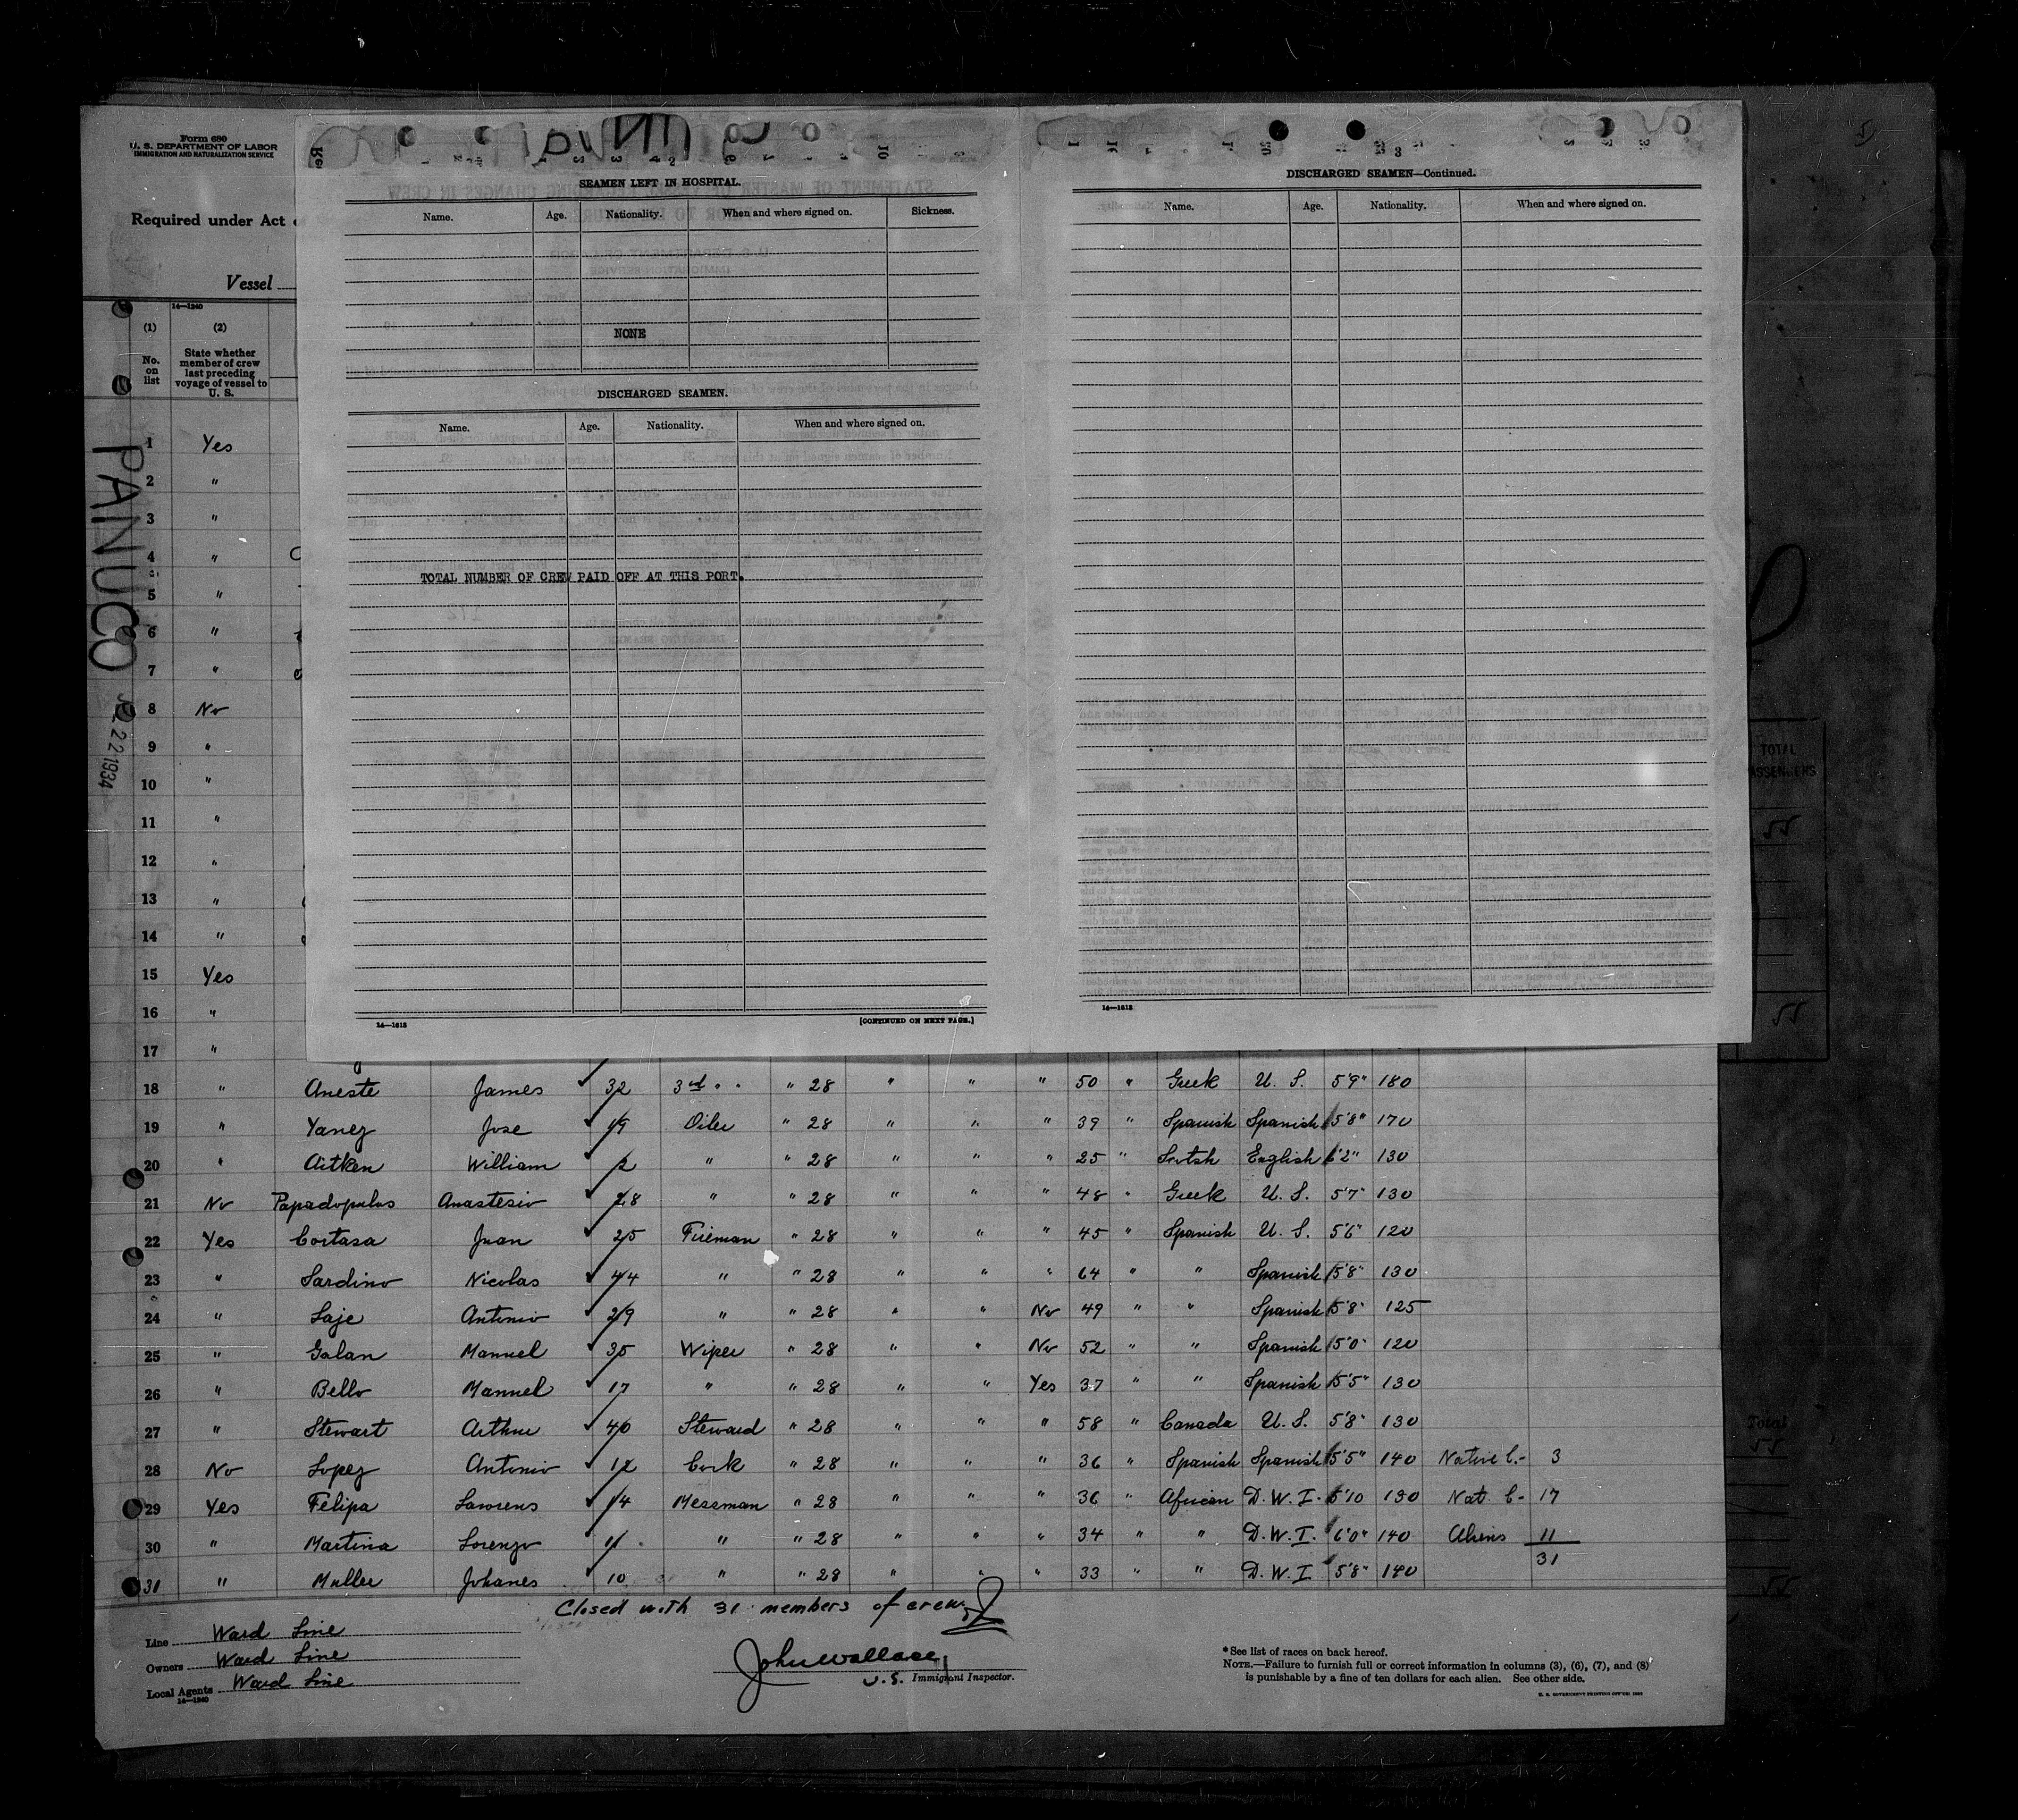 Form 680
U. S. DEPARTMENT OF LABOR
IMMIGRATION AND NATURALIZATION SERVICE
Required under Act
Vessel
14—1240
(1) (2)
No. on list State whether member of crew last preceding voyage of vessel to U. S.
PANUCO
22 1934
SEAMEN LEFT IN HOSPITAL.
Name. Age. Nationality. When and where signed on. Sickness.
NONE
DISCHARGED SEAMEN.
Name. Age. Nationality. When and where signed on.
TOTAL NUMBER OF CREW PAID OFF AT THIS PORT.
14—1612
[CONTINUED ON NEXT PAGE.]
DISCHARGED SEAMEN—Continued.
Name. Age. Nationality. When and where signed on.
14—1612
TOTAL
55
55
Total
55
55
1 Yes
2 "
3 "
4 "
5 "
6 "
7 "
8 No
9 "
10 "
11 "
12 "
13 "
14 "
15 Yes
16 "
17 "
18 " Aneste James 32 3rd " " " 28 " " " 50 " Greek U. S. 5'9" 180
19 " Yanez Jose 19 Oiler " 28 " " " 39 " Spanish Spanish 5'8" 170
20 " Aitken William 2 " " 28 " " " 25 " Scotsh English 6'2" 130
21 No Papadopulos Anastesio 28 " " 28 " " " 48 " Greek U. S. 5'7" 130
22 Yes Cortasa Juan 25 Fireman " 28 " " " 45 " Spanish U. S. 5'6" 120
23 " Sardino Nicolas 44 " " 28 " " " 64 " " Spanish 5'8" 130
24 " Saje Antonio 29 " " 28 " " No 49 " " Spanish 5'8" 125
25 " Galan Manuel 35 Wiper " 28 " " No 52 " " Spanish 5'0" 120
26 " Bello Manuel 17 " " 28 " " Yes 37 " " Spanish 5'5" 130
27 " Stewart Arthur 40 Steward " 28 " " " 58 " Canada U. S. 5'8" 130
28 No Lopez Antonio 12 Cook " 28 " " " 36 " Spanish Spanish 5'5" 140 Native C.- 3
29 Yes Felipa Lawrens 14 Messman " 28 " " " 36 " African D. W. I. 5'10 130 Nat. C- 17
30 " Martina Lorenzo 11 " " 28 " " " 34 " " D. W. I. 6'0" 140 Aliens 11
31
31 " Muller Johanes 10 " " 28 " " " 33 " " D. W. I. 5'8" 140
Closed with 31 members of crew
Line Ward Line
Owners Ward Line
Local Agents Ward Line
14—1240
John Wallace
U.S. Immigrant Inspector.
*See list of races on back hereof.
NOTE.—Failure to furnish full or correct information in columns (3), (6), (7), and (8)
is punishable by a fine of ten dollars for each alien. See other side.